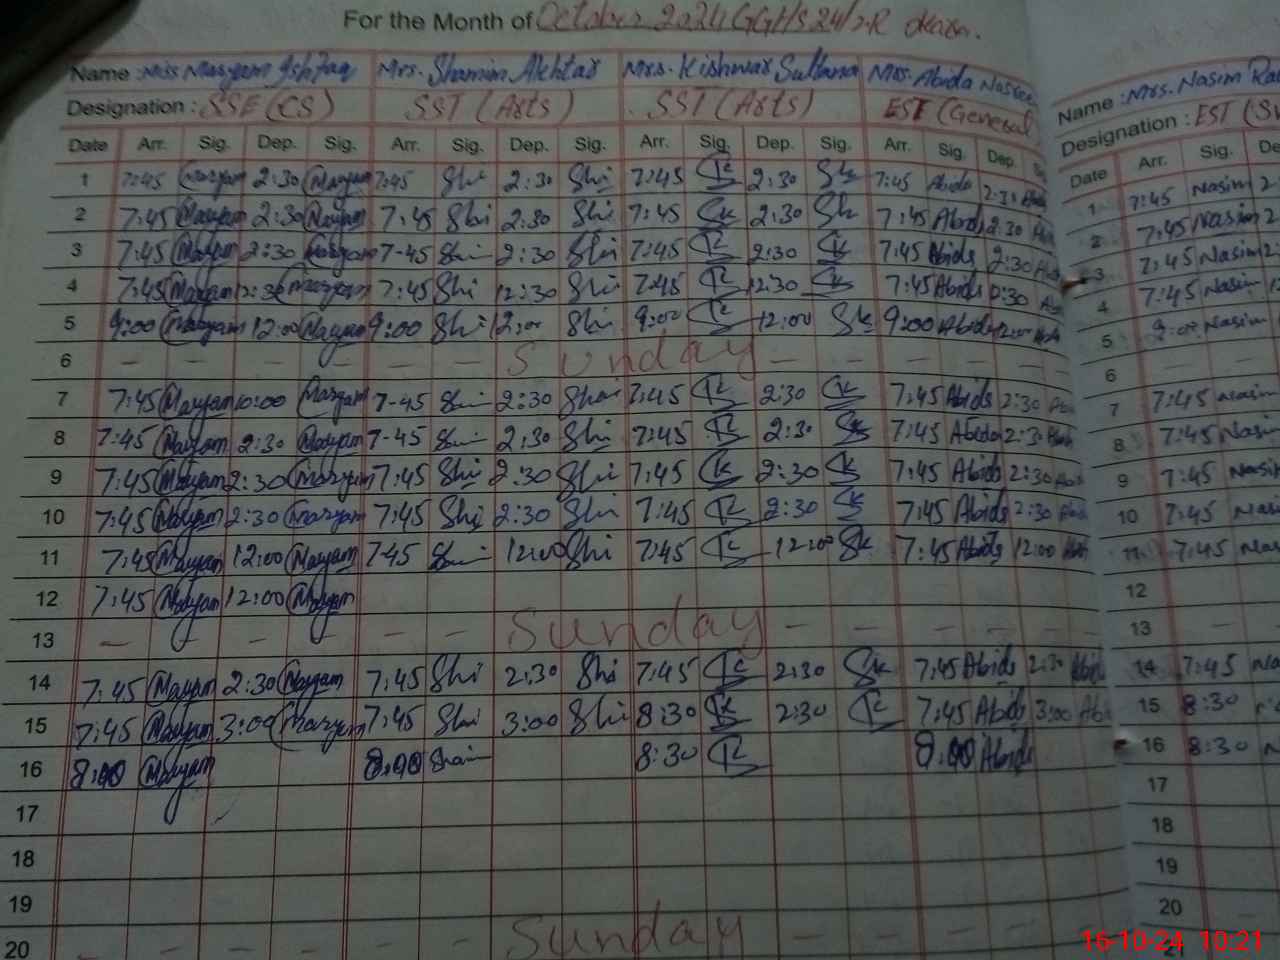 For the Month of October 2024 GGHS 24/2-R Okara.
Name : Miss Maryam Ishfaq Mrs. Shamim Akhtar Mrs. Kishwar Sultana Mrs. Abida Name : Mrs. Nasim
Designation : SSE (CS) SST (Arts) SST (Arts) EST (General Designation : EST
Date Arr. Sig. Dep. Sig. Arr. Sig. Dep. Sig. Arr. Sig. Dep. Sig. Arr. Sig. Dep. Date Arr. Sig.
1 7:45 Maryam 2:30 Maryam 7:45 Shi 2:30 Shi 7:45 2:30 Sk 7:45 Abida 2:30 1 7:45 Nasim
2 7:45 Maryam 2:30 Maryam 7:45 Shi 2:30 Shi 7:45 2:30 Sk 7:45 Abids 2:30 2 7:45 Nasim
3 7:45 Maryam 2:30 Maryam 7-45 2:30 Shi 7:45 2:30 7:45 Abids 2:30 3 7:45 Nasim
4 7:45 Maryam 12:30 Maryam 7:45 Shi 12:30 Shi 7:45 12:30 7:45 Abids 12:30 4 7:45 Nasim
5 9:00 Maryam 12:00 Maryam 9:00 Shi 12:00 Shi 9:00 12:00 Sk 9:00 Abids 12:00 5 9:00 Nasim
6 – – – – – – Sunday – – – – – – 6
7 7:45 Maryam 10:00 Maryam 7-45 2:30 7:45 2:30 7:45 Abids 2:30 7 7:45 Nasim
8 7:45 Maryam 2:30 Maryam 7-45 2:30 Shi 7:45 2:30 7:45 Abida 2:30 8 7:45 Nasim
9 7:45 Maryam 2:30 Maryam 7:45 Shi 2:30 Shi 7:45 2:30 7:45 Abids 2:30 9 7:45
10 7:45 Maryam 2:30 Maryam 7:45 Shi 2:30 Shi 7:45 2:30 7:45 Abids 2:30 10 7:45
11 7:45 Maryam 12:00 Maryam 7-45 12:00 Shi 7:45 12:00 Sk 7:45 Abids 12:00 11 7:45
12 7:45 Maryam 12:00 Maryam 12
13 – – – – – – Sunday – – – – – – 13
14 7:45 Maryam 2:30 Maryam 7:45 Shi 2:30 Shi 7:45 2:30 Sk 7:45 Abids 2:30 14 7:45
15 7:45 Maryam 3:00 Maryam 7:45 Shi 3:00 Shi 8:30 2:30 7:45 Abids 3:00 15 8:30
16 8:00 Maryam 8:00 8:30 8:00 Abids 16 8:30
17 17
18 18
19 19
20 – – – – – – Sunday – – – – 20
21
16-10-24 10:21